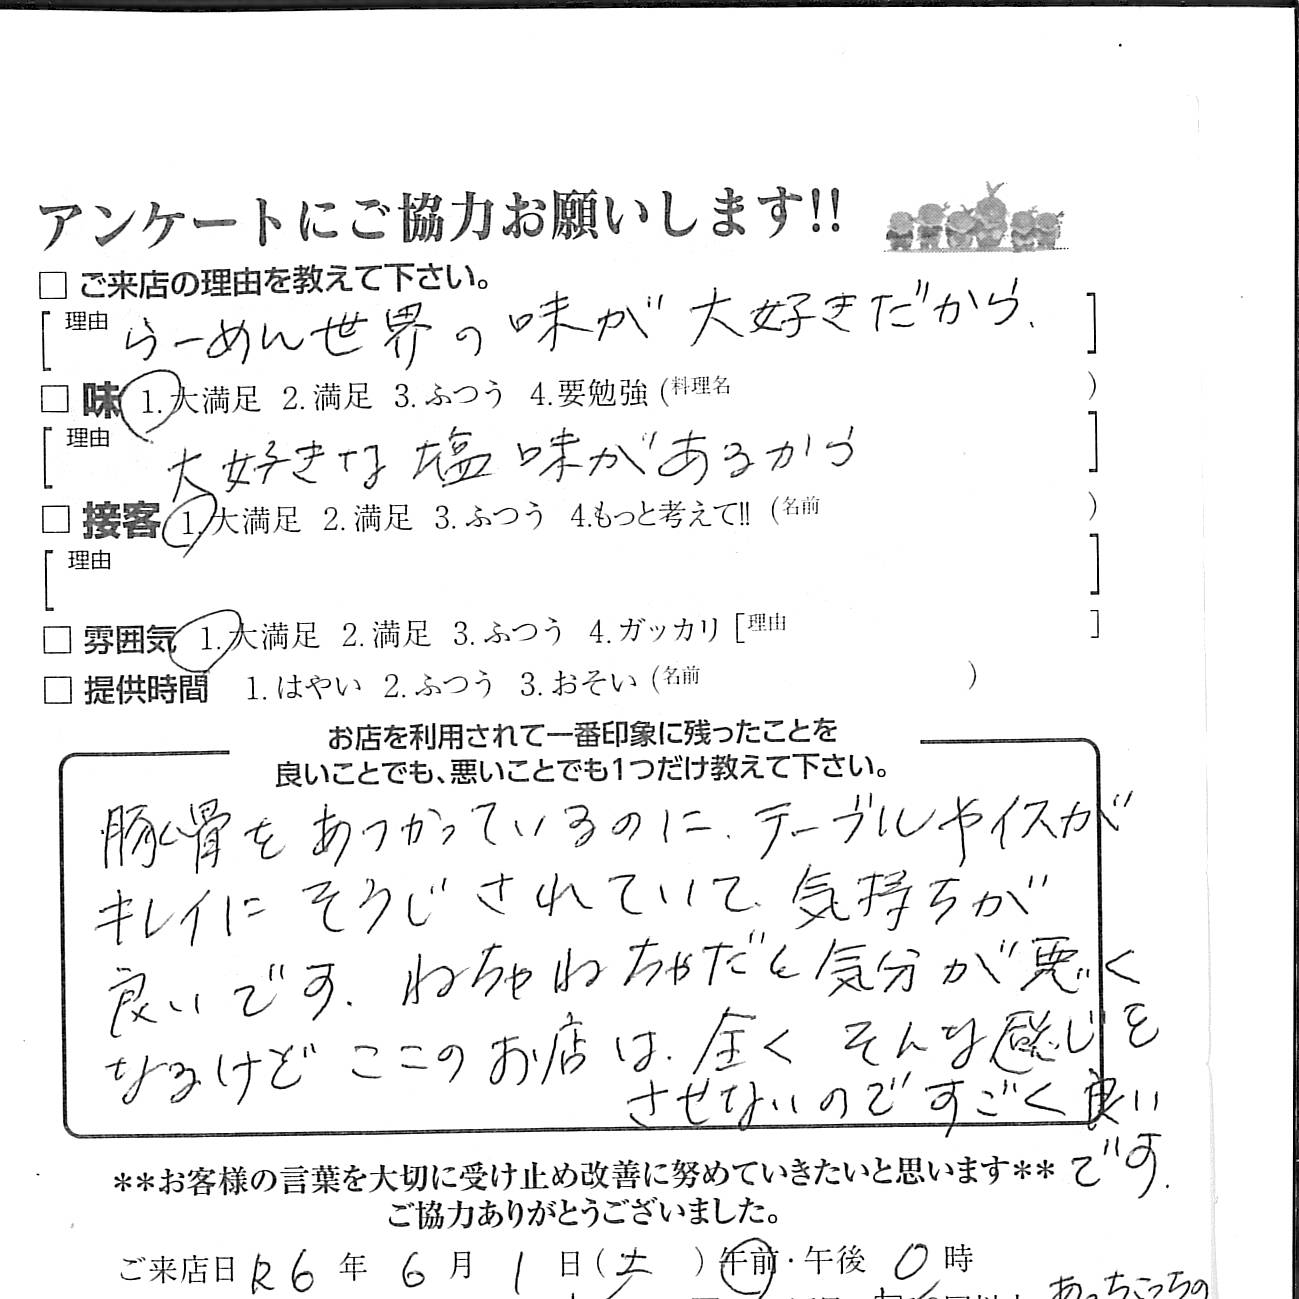 アンケートにご協力お願いします!!
□ ご来店の理由を教えて下さい。
[理由 らーめん世界の味が大好きだから、]
□ 味 1.大満足 2.満足 3.ふつう 4.要勉強 (料理名 )
[理由 大好きな塩味があるから]
□ 接客 1.大満足 2.満足 3.ふつう 4.もっと考えて!! (名前 )
[理由 ]
□ 雰囲気 1.大満足 2.満足 3.ふつう 4.ガッカリ [理由 ]
□ 提供時間 1.はやい 2.ふつう 3.おそい (名前 )
お店を利用されて一番印象に残ったことを
良いことでも、悪いことでも1つだけ教えて下さい。
豚骨をあつかっているのに、テーブルやイスが
キレイにそうじされていて、気持ちが
良いです。ねちゃねちゃだと気分が悪く
なるけどここのお店は、全くそんな感じを
させないのですごく良い
です。
**お客様の言葉を大切に受け止め改善に努めていきたいと思います**
ご協力ありがとうございました。
ご来店日 R6 年 6 月 1 日(土) 午前・午後 0 時
あっちこっちの